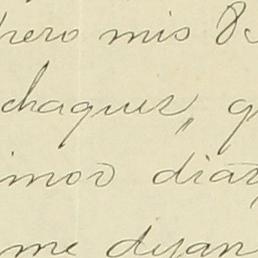 pero mis
chaques, q
imos dias,
me dejan